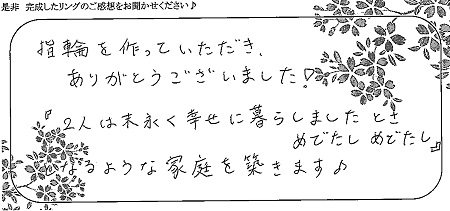 是非 完成したリングのご感想をお聞かせください♪
指輪を作っていただき、
ありがとうございました!
『2人は末永く幸せに暮らしましたとさ
めでたし めでたし』
なるような家庭を築きます♪